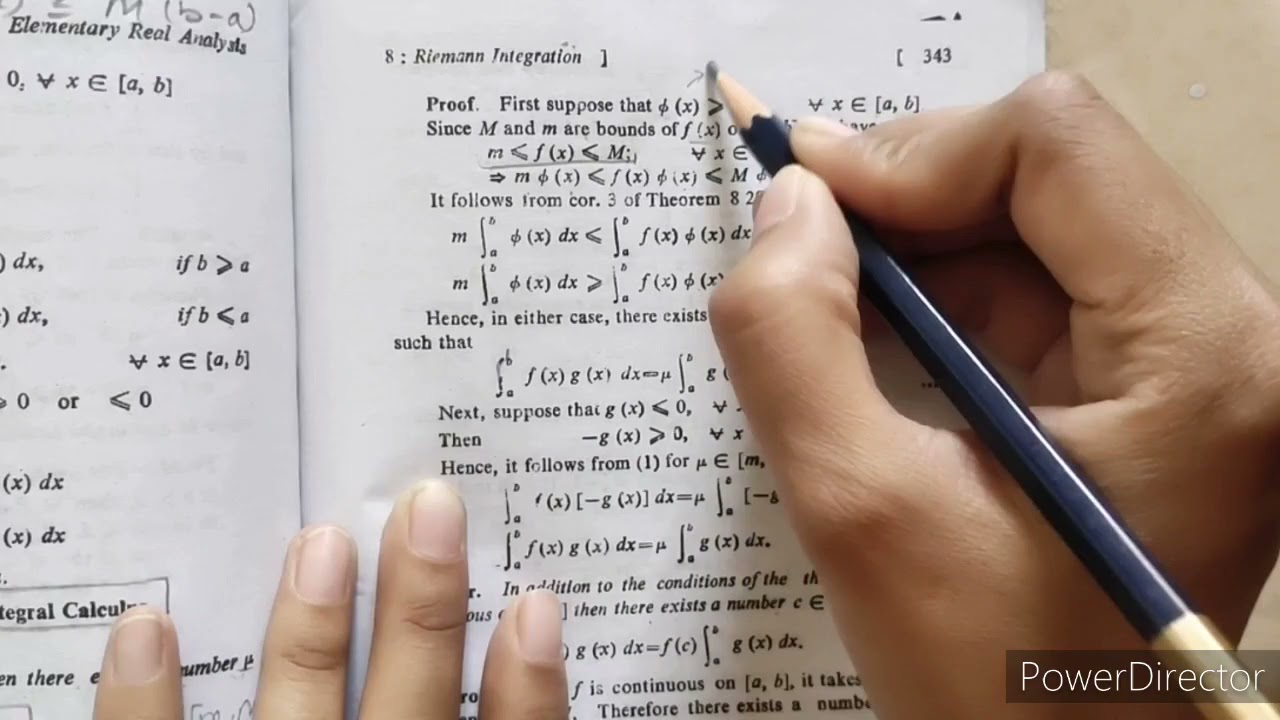 M (b-a)
Elementary Real Analysis
0, ∀ x ∈ [a, b]
) dx, if b ⩾ a
) dx, if b ⩽ a
∀ x ∈ [a, b]
⩾ 0 or ⩽ 0
(x) dx
(x) dx
tegral Calculus
en there number μ
8 : Riemann Integration ]
[ 343
Proof. First suppose that ϕ (x) ⩾ ∀ x ∈ [a, b]
Since M and m are bounds of f (x)
m ⩽ f (x) ⩽ M; ∀ x ∈
⇒ m ϕ (x) ⩽ f (x) ϕ (x) ⩽ M
It follows from cor. 3 of Theorem 8
m ∫_a^b ϕ (x) dx ⩽ ∫_a^b f (x) ϕ (x) dx
m ∫_a^b ϕ (x) dx ⩾ ∫_a^b f (x) ϕ (x)
Hence, in either case, there exists
such that
∫_a^b f (x) g (x) dx=μ ∫_a^b g
Next, suppose that g (x) ⩽ 0, ∀
Then −g (x) ⩾ 0, ∀ x
Hence, it follows from (1) for μ ∈ [m,
∫_a^b f (x) [−g (x)] dx=μ ∫_a^b [−g
∫_a^b f (x) g (x) dx=μ ∫_a^b g (x) dx.
In addition to the conditions of the
] then there exists a number c ∈
) g (x) dx=f (c) ∫_a^b g (x) dx.
f is continuous on [a, b], it takes
Therefore there exists a
PowerDirector